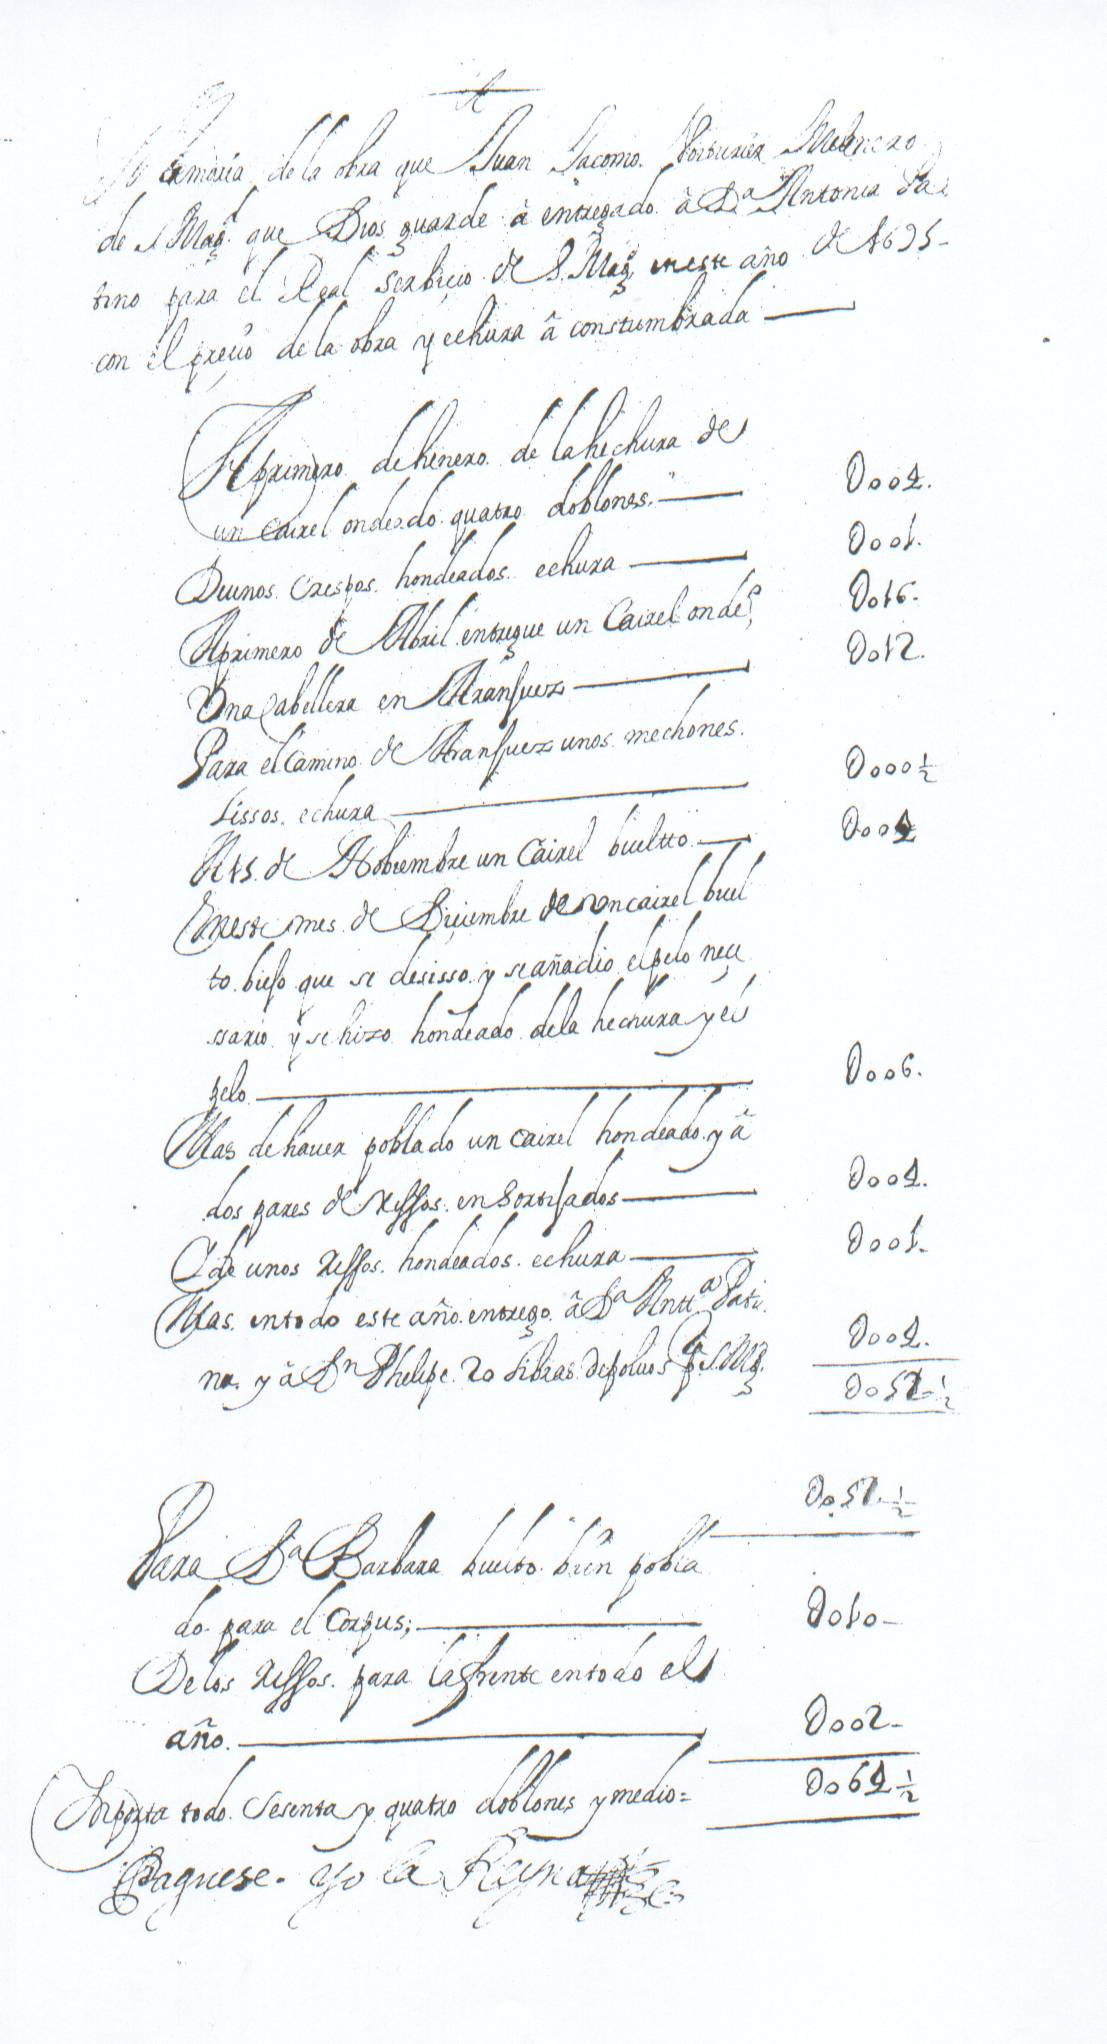 Memoria de la obra que Juan Jacomo Peluquero
de S Magd. que Dios guarde â entregado â Da Antonia Pa
tino para el Real serbiçio de S. Magd. en este año de 1695-
con el preçio de la obra y echura â constumbrada
A primero de henero de la hechura de
un cairel ondeado quatro doblones. 0004.
De unos crespos hondeados echura 0001.
A primero de Abril entregue un Cairel onde° 0016.
Una cabellera en Aranjuez 0012.
Para el camino de Aranjuez unos mechones.
lissos. echura 0000 ½
A 15 de Nobiembre un Cairel bueltto 0004
En este mes de Diçiembre de un cairel buel
to biejo que se desisso y se añadio el pelo neçe
ssario y se hizo hondeado de la hechura y el
pelo 0006.
Mas de haver poblado un cairel hondeado y â
dos pares de rissos ensortijados 0004.
Y de unos rissos hondeados echura 0001-
Mas en todo este año entrego â Da Antta Pati
na y â Dn Phelipe 20 libras de polvos pa S. Mgd. 0004.
0052 ½
0052 ½
Para Da Barbara buelto bien pobla
do para el Corpus; 0010-
De los rissos para la frente en todo el
año. 0002-
Importa todo sesenta y quatro doblones y medio= 0064 ½
Paguese. Yo la Reyna